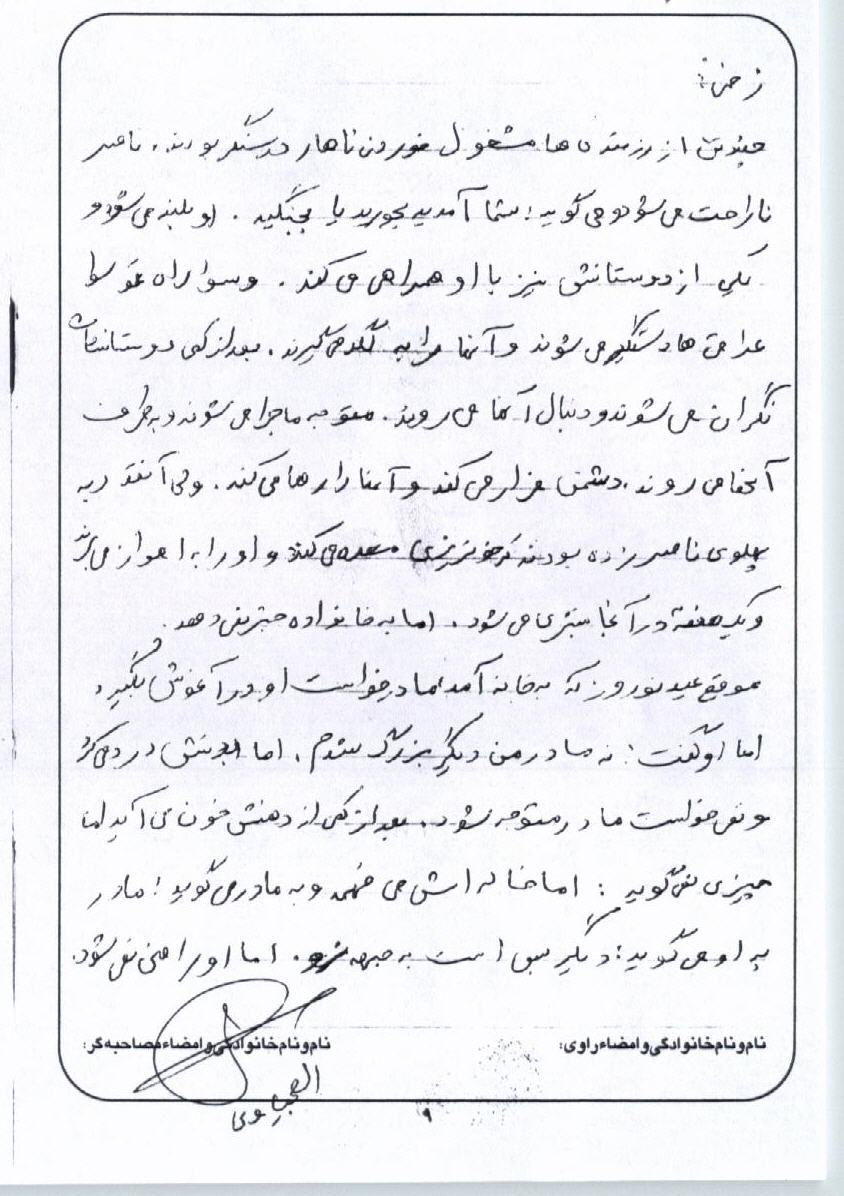 زخمی:
چندین از رزمنده ها مشغول خوردن ناهار در سنگر بودند. ناصر
ناراحت می شود و می گوید: شما آمدید بخورید یا بجنگید. او بلند می شود و
یکی از دوستانش نیز با او همراهی می کند.
عراقی ها دستگیر می شوند و آنها را به می گیرند. بعد از کمی دوستانشان
نگران می شوند و دنبال آنها می روند. متوجه ماجرا می شوند و به طرف
آنها می روند، دشمن فرار می کند و آنها را رها می کند. ولی آنقدر به
پهلوی ناصر زده بودند که خونریزی می کند و او را به اهواز می برند
و یک هفته در آنجا بستری می شود. اما به خانواده خبر نمی دهد.
موقع عید نوروز که به خانه آمد مادر خواست او را در آغوش بگیرد
اما او گفت: نه مادر من دیگر بزرگ شدم. اما بدنش درد می کرد
و نمی خواست مادر متوجه شود. بعد از کمی از دهنش خون می آید اما
چیزی نمی گوید: اما خاله اش می فهمد و به مادر می گوید: مادر
به او می گوید: دیگر بس است به جبهه نرو. اما او راضی نمی شود.
نام و نام خانوادگی و امضاء راوی:
نام و نام خانوادگی و امضاء مصاحبه گر:
۹